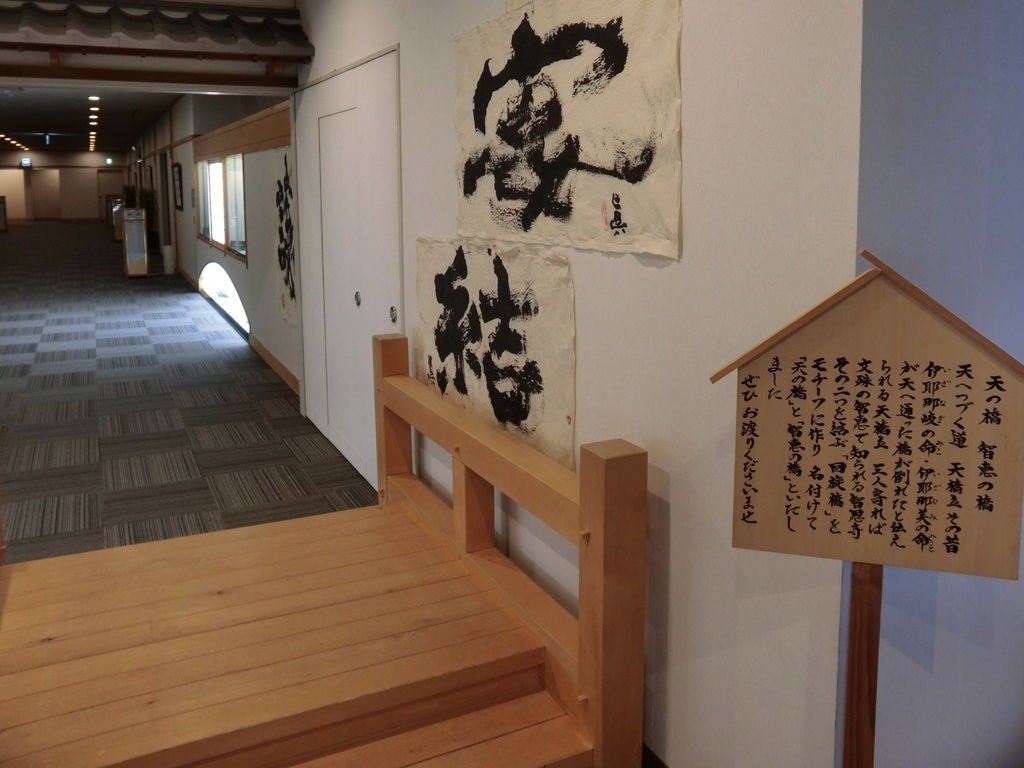 天の橋　智恵の橋
天へつづく道　天橋立　その昔
伊耶那岐の命　伊耶那美の命
が天へ通った橋が倒れたと伝え
られる天橋立　三人寄れば
文殊の智恵で知られる智恩寺
その二つを結ぶ「回旋橋」を
モチーフに作り　名付けて
「天の橋」と「智恵の橋」といたし
ました
ぜひ お渡りくださいませ
結